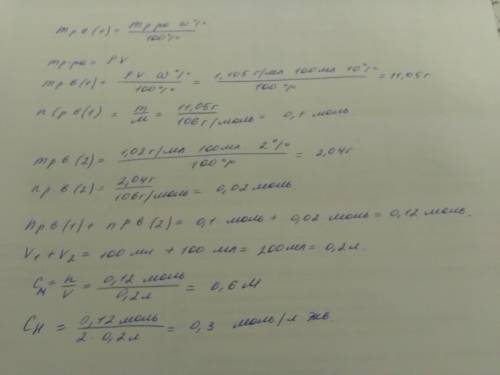 m р.в (1) = m р-ра ω % / 100%
m р-ра = ρV
m р.в (1) = ρV ω % / 100% = 1,105 г/мл 100 мл 10% / 100% = 11,05г
n (р.в (1) = m / M = 11,05г / 106 г/моль = 0,1 моль
m р.в (2) = 1,02 г/мл 100 мл 2% / 100% = 2,04г
n р.в (2) = 2,04г / 106 г/моль = 0,02 моль.
n р.в (1) + n р.в (2) = 0,1 моль + 0,02 моль = 0,12 моль.
V₁ + V₂ = 100 мл + 100 мл = 200мл = 0,2 л.
Cм = n / V = 0,12 моль / 0,2 л = 0,6 M
Cн = 0,12 моль / 2 · 0,2 л = 0,3 моль/л экв.